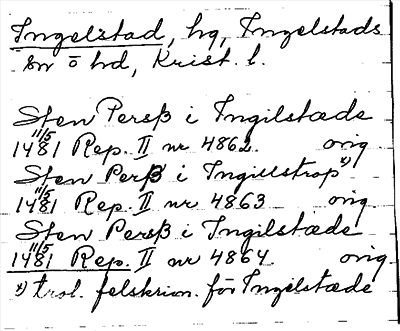 Ingelstad, hg, Ingelstads
sn o hd, Krist. l.
Sten Persß i Ingilstæde
11/5 1481 Rep. II nr 4862. orig
Sten Perß i Ingillstrop x)
11/5 1481 Rep. II nr 4863 orig.
Sten Persß i Ingilstæde
11/5 1481 Rep. II nr 4864. orig.
x) trol. felskrivn. för Ingilstæde